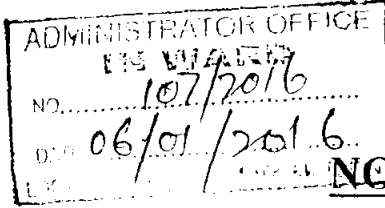 ADMINISTRATOR OFFICE
IN WARD
NO. 107/2016
06/01/2016
NO